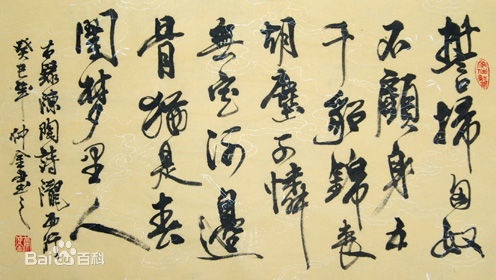 誓掃匈奴
不顧身五
千貂錦喪
胡塵可憐
無定河邊
骨猶是春
閨夢里人
右錄陳陶詩隴西行
癸巳年仲金書之
Baidu百科